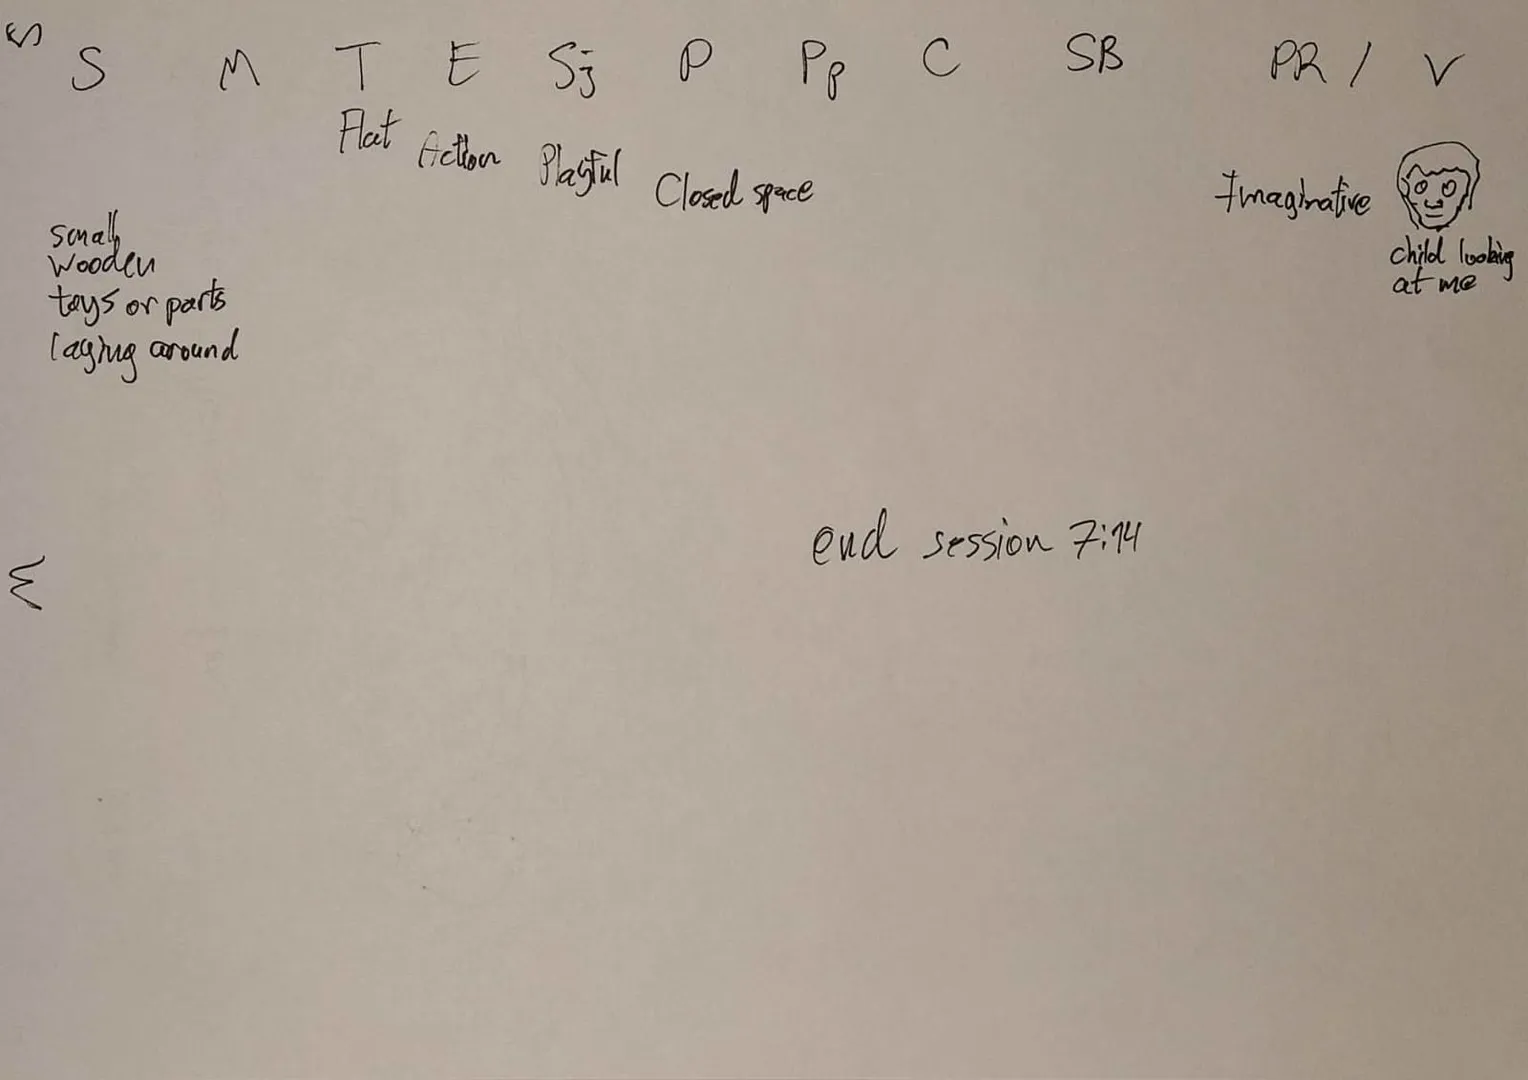 S M T E Sj P Pp C SB PR / V
Flat
Action
Playful
Closed space
Imaginative
small
wooden
toys or parts
laying around
child looking
at me
end session 7:14